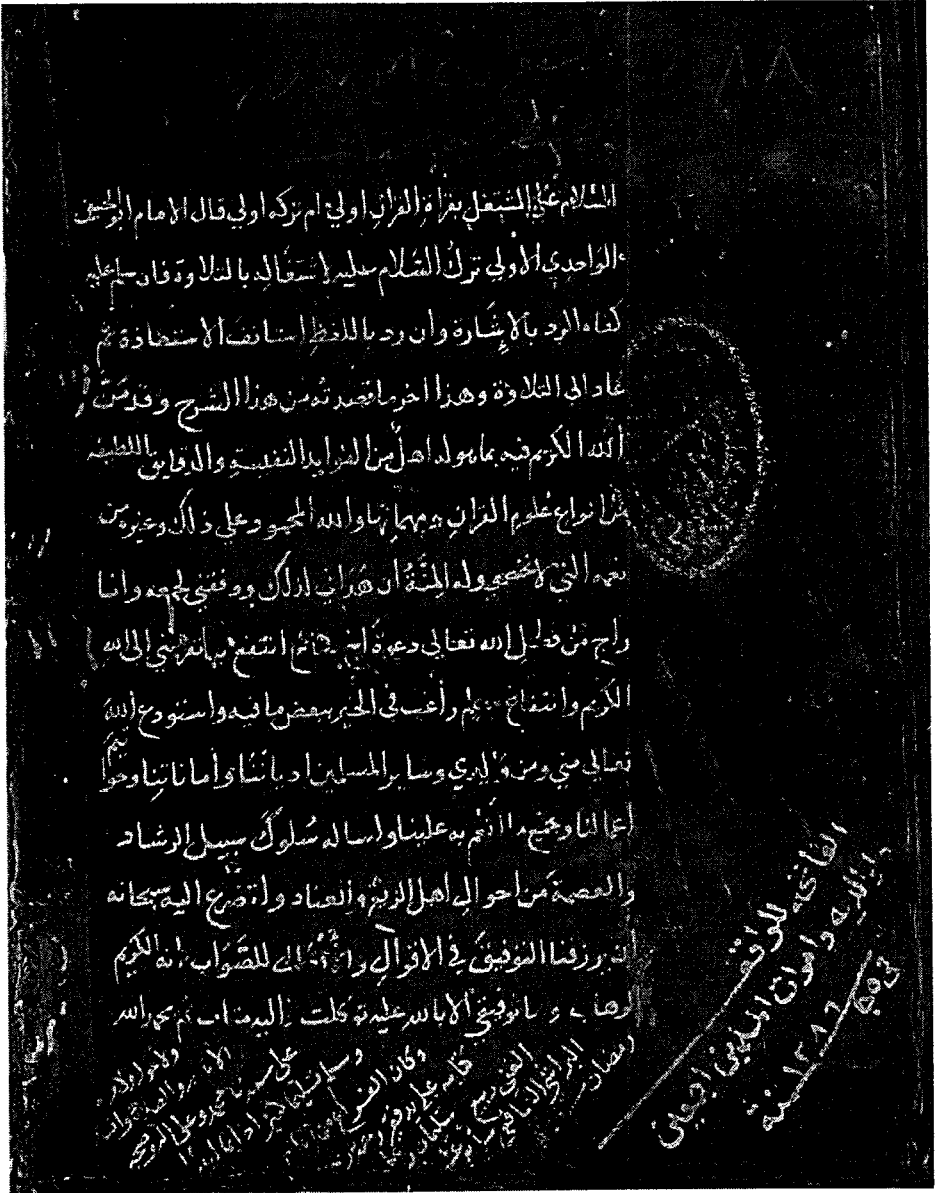 السلام على المشتغل بقراة القران اولي ام تركه اولي قال الامام ابو الحسن
الواحدي الاولي ترك السلام عليه لاشتغاله بالتلاوة فان سلم عليه
كفاه الرد بالاشارة وان رد باللفظ استانف الاستعاذة ثم
عاد الى التلاوة وهذا اخر ما قصدته من هذا الشرح وقد من
الله الكريم فيه بما هو له اهل من الفوايد النفيسة والدقايق اللطيفه
من انواع علوم القران ومهماتها والله المحمود على ذلك وغيره من
نعمه التي لا تحصى وله المنة ان هداني لذلك ووفقني لجمعه وانا
راج من فضل الله تعالى دعوة اخ صالح انتفع بها تقربني الى الله
الكريم وانتفاع مسلم راغب في الخير ببعض ما فيه واستودع الله
تعالى مني ومن والدي وساير المسلمين ادياننا واماناتنا وخواتيم
اعمالنا وجميع ما انعم به علينا واساله سلوك سبيل الرشاد
والعصمة من احوال اهل الزيغ والعناد واتضرع اليه سبحانه
ان يرزقنا التوفيق في الاقوال للصواب انه الكريم
الوهاب وما توفيقي الا بالله عليه توكلت واليه متاب تم بحمد الله
وكان الفراغ
رمضان
على سيدنا محمد وعلى اله وصحبه
وسلم تسليما كثيرا
الفاتحه للواقف
والديه واموات المسلمين اجمعين
١٢٨٦ سنة